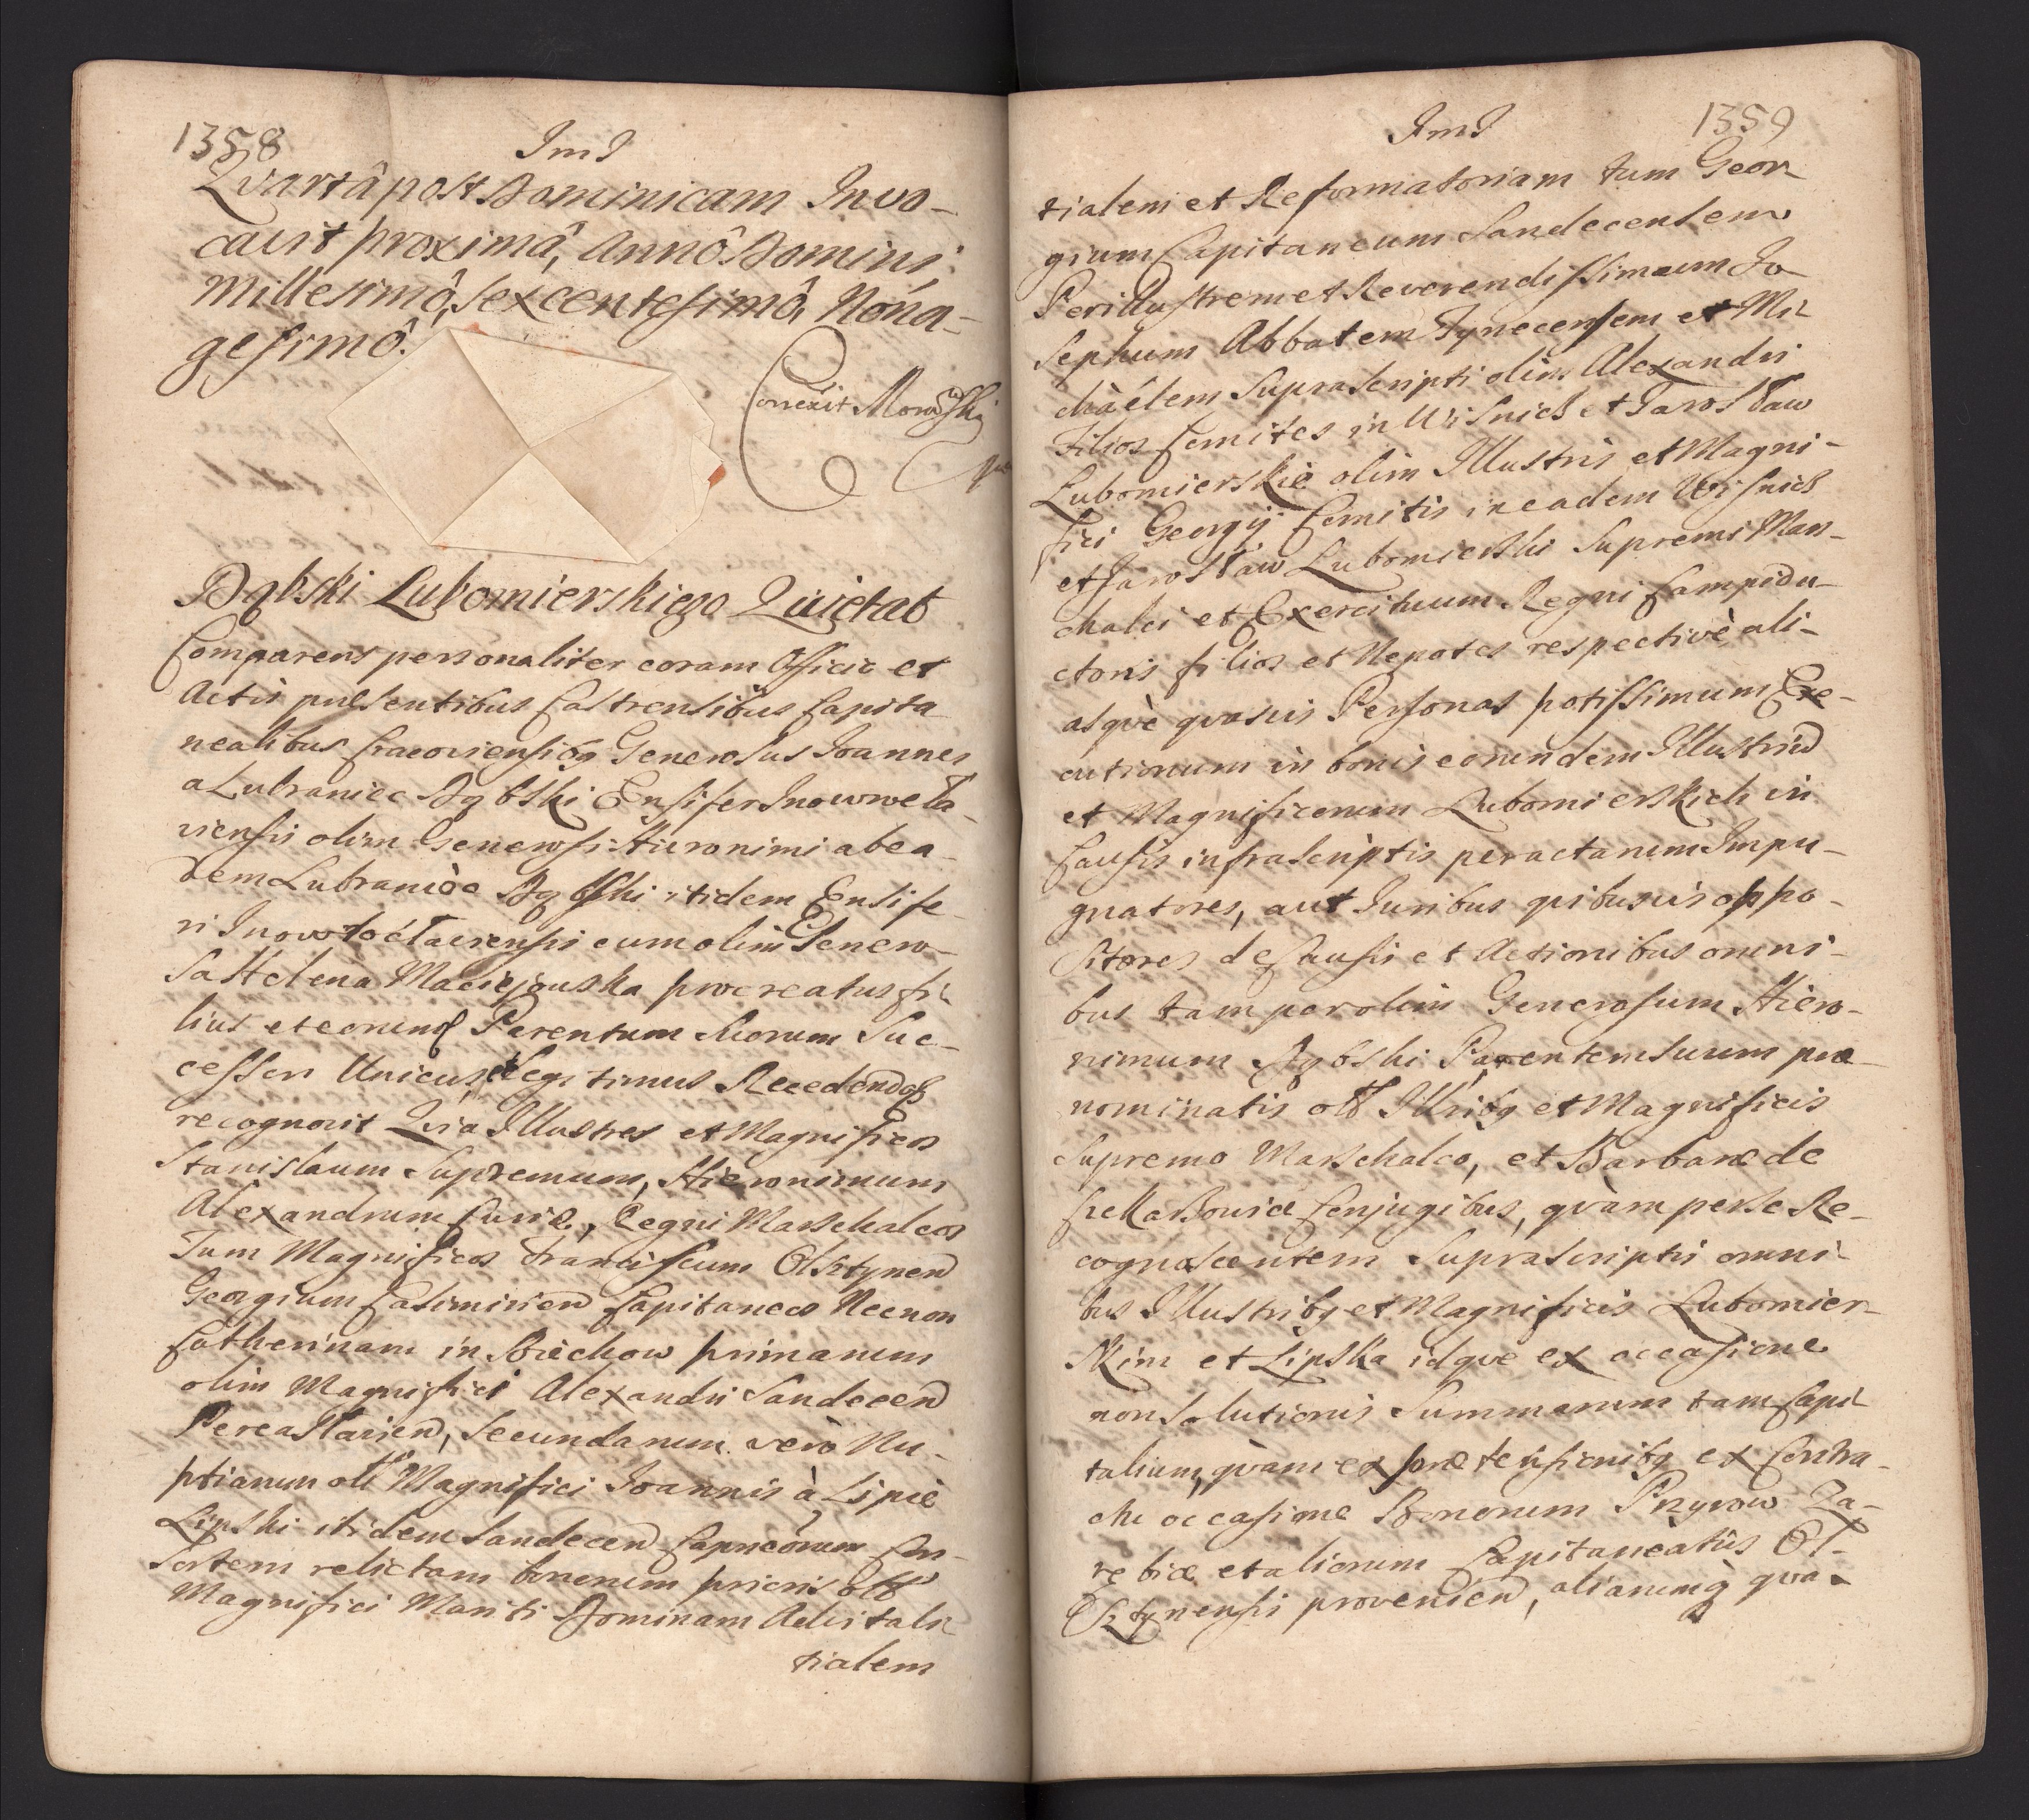 1358
JmJ
Qvartâ post Dominicam Invo-
cavit proximâ, Annô Domini
Millesimô, Sexcentesimô, Nona-
gesimô.
Correxit
Dąbski Lubomierskiego Quietat
Comparens personaliter coram Officio et
Actis præsentibus Castrensibus Capita
nealibus Cracoviensibq Generosus Joannes
a Lubraniec Dąbski Ensifer Inowwła-
viensis olim Generosi Hieronimi ab ea-
dem Lubraniec Dąbski itidem Ensife
ri cum olim Genero-
sa Helena Maciejouska procreatus fi-
lius et eorund Parentum suorum Suc-
cessor Unicus et Legitimus Recedendo
recognovit Qvia Illustres et Magnificos
Stanislaum Supremum, Hieronimum
Alexandrum Curiæ, Regni Marschalcos
Tum Magnificos Franciscum Olsztynen
Georgium Casimirien Capitaneos Necnon
Catherinam in Borchow primarum
olim Magnifici Alexandri Sandecen
Pereaslavien, Secundarum verò Nu-
ptiarum olī Magnifici Joannis à Lipie
Lipski itidem Sandecen Capneorum Con-
sortem relictam bonorum prioris olī
Magnifici Mariti Dominam Advitali-
tialem
1359
JmJ
tialem et Reformatoriam tum Geor
gium Capitaneum Sandecensem
Perillustrem et Reverendissimum Jo
sephum Abbatem Tynecensem et Mi-
chàélem Suprascripti olim Alexandri
Filios Comites in Wisnicz et Jarosław
Lubomierskie olim Illustris et Magni-
fici Georgij Comitis in eadem Wisnicz
et Jarosław Lubomierski Supremi Mar-
chalci et Exercituum Regni Campidu-
ctoris filios et Nepotes respectivè ali-
asqvè qvasvis Personas potissimum Exe-
cutionum in bonis eorundem Illustriū
et Magnificorum Lubomierskich in
Causis infrascriptis peractarum Impu-
gnatores, aut Juribus qvibusvis oppo-
sitores de Causis et Actionibus omni-
bus tam per olim Generosum Hiero-
nimum Dąbski Parentem suum præ-
nominatis olī Illribq et Magnificis
Supremo Marschalco, et Barbaræ de
Conjugibus, qvàm per se Re-
cognoscentem Suprascriptis omni-
bus Illustribq et Magnificis Lubomier-
skim et Lipska idqve ex occasione
non Solutionis Summarum tam Capi-
talium, qvàm ex prætensionibq ex Contra-
ctu occasione Bonorum Przyrow Za-
rebice et aliorum Capitaneatûs Ol-
sztynensis provenien, aliarumq qva-